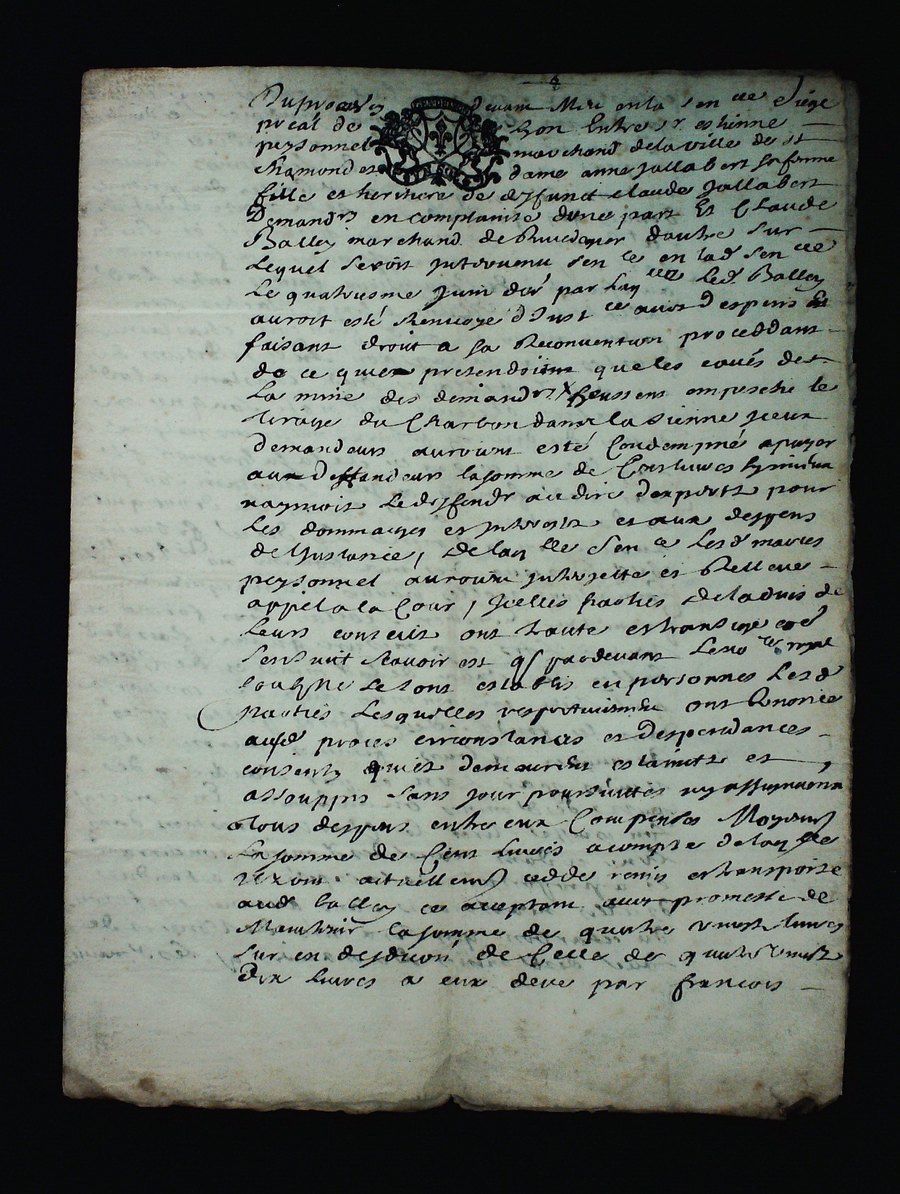 Du procès devant Mr en la sen ce Siège
preal de Lion Entre sr estienne
peyssonnel marchand de la ville de st
Chamond et dame anne Jallabert sa femme
fille et heritiere de deffunct claude Jallabert
Demandrs en complainte d'une part Et Claude
Balley marchand de d'autre sur
Lequel seroit Intervenu sen ce en lad sen cee
Le quatriesme Juin der par laqlle Led Balley
auroit esté Renvoyé d'Inst ce avec Despens Et
faisant droit a sa Reconvention proceddant
de ce qu'il pretendoit que les eaues de
La mine des demandrs heussent empesché le
tirage du Charbon dans la sienne Iceux
demandeurs auroient esté Condempné a payer
aux Deffandeurs la somme de Cent livres sy mieux
n'aymoit Le deffendr au dire d'expertz pour
les dommages et Interestz et aux despens
de l'Instance, de laqlle sen ce Lesd mariés
peyssonnel auroient Interjetté et Relleve
appel a la Cour, Icelles parties de l'advis de
Leurs conseils ont traitté et transigé co e
s'ensuit scavoir est q par devant Le no re royal
soubsne se sont establis en personnes Lesd
parties Lesquelles respectivement ont Renoncé
aud procès circonstances et despendances
consenty qu'il demeurent estaintz et
assouppis sans pour poursuittes ny assignaons
Tous despens entre eux Compensés Moyennt
La somme de Cent livres a compte de laqlle
cedde remis et transporté
aud balley ce aceptant avec promesse de
Maintenir la somme de quatre vingt livres
sur en desduon de Celle de quatre vingt
Dix livres a eux deue par françois